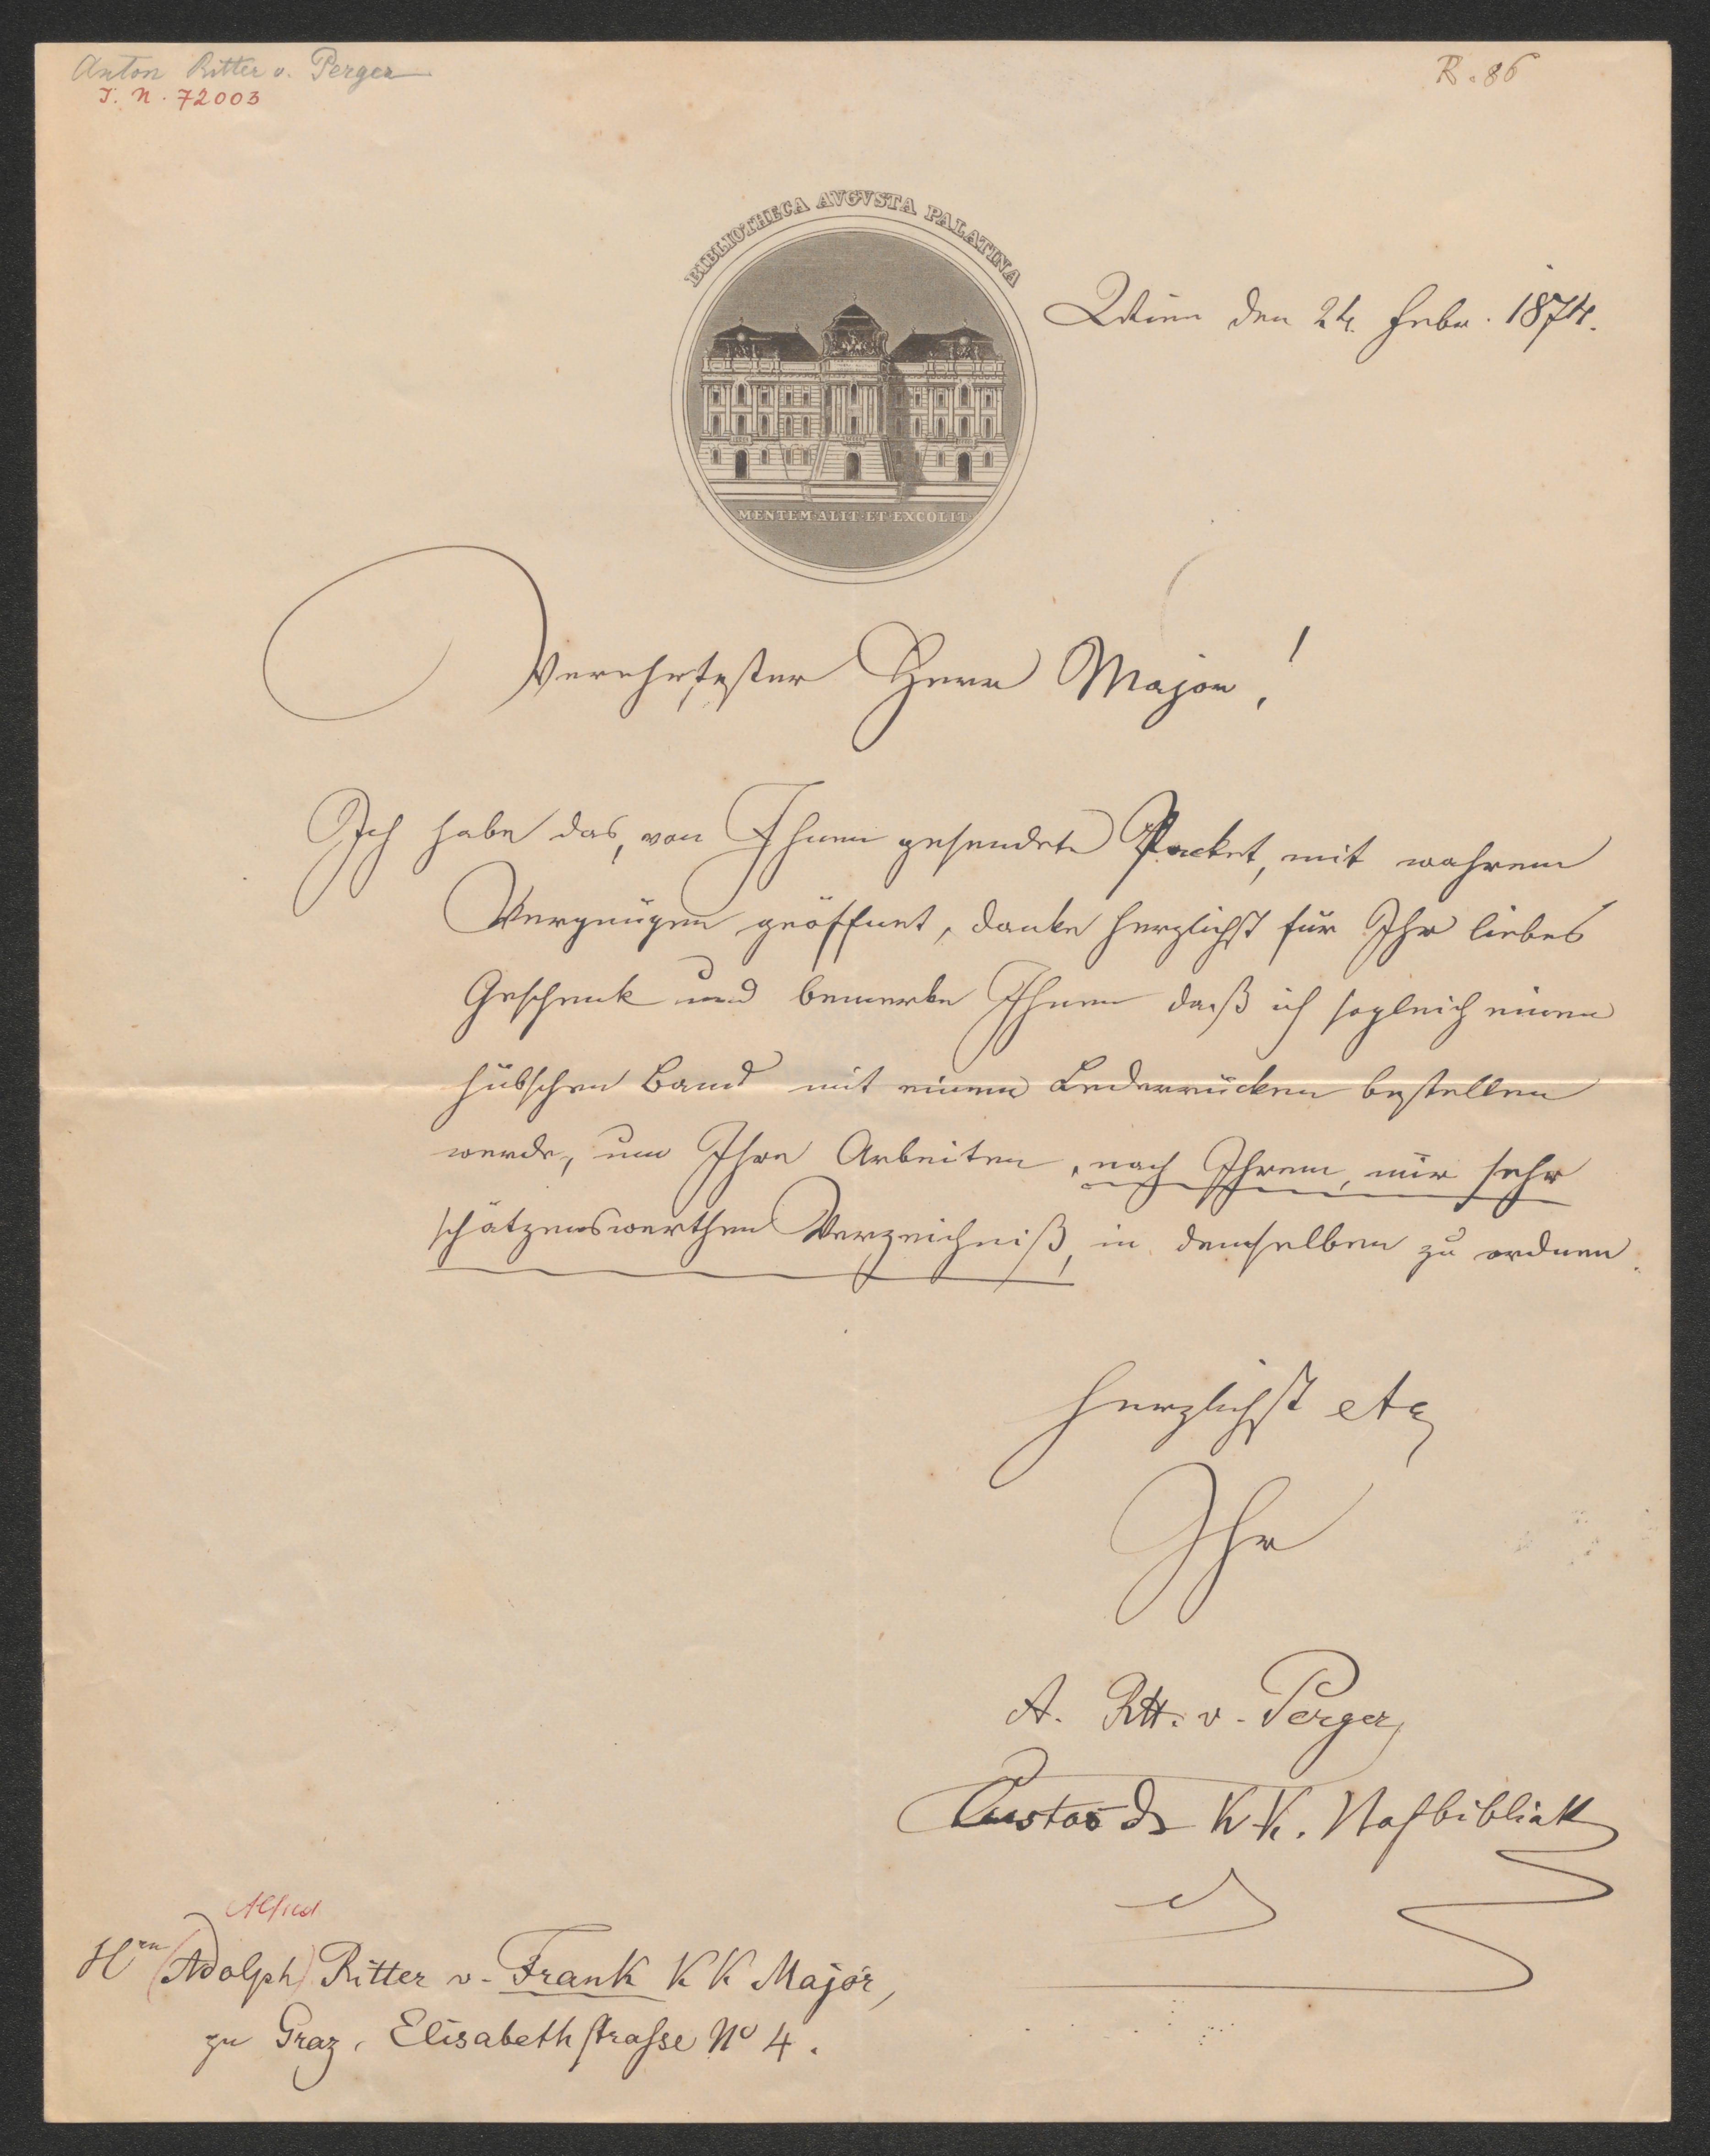 Anton Ritter v. Perger
I. N. 72003
R. 86
BIBLIOTHECA AVGVSTA PALATINA
MENTEM·ALIT·ET·EXCOLIT
Wien den 24. Febr. 1874.
Verehrtester Herr Major!
Ich habe das, von Ihnen gesendete Packet, mit wahrem
Vergnügen geöffnet, danke herzlichst für Ihr liebes
Geschenk und bemerke Ihnen daß ich sogleich einen
hübschen Band mit einem Lederrücken bestellen
werde, um Ihre Arbeiten, nach Ihrem, mir sehr
schätzenswerthen Verzeichniß, in demselben zu ordnen.
Herzlichst etc
Ihr
A. Rtt. v. Perger
Custos d. K.K. Hofbiblioth
Alfred
Hrn (Adolph) Ritter v. Frank K K Major,
zu Graz, Elisabethstrasse No 4.